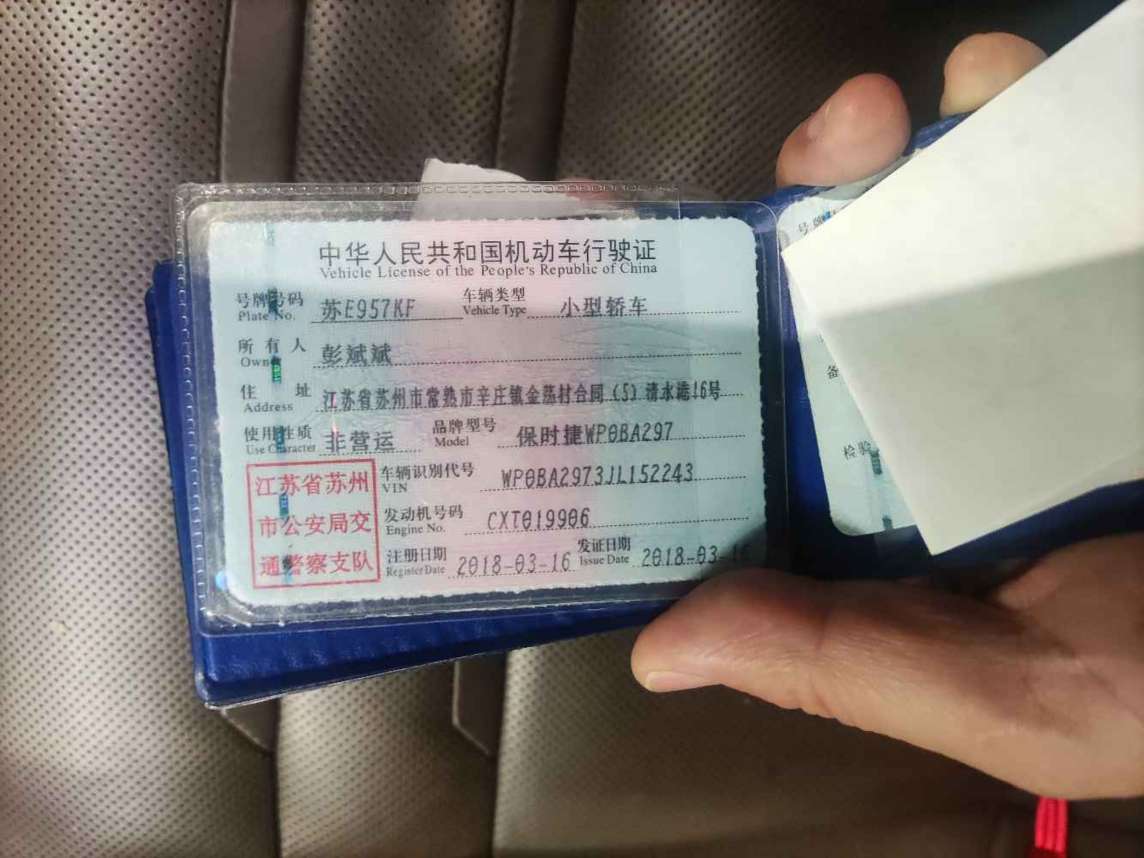 中华人民共和国机动车行驶证
Vehicle License of the People's Republic of China
号牌号码 苏E957KF 车辆类型 小型轿车
Plate No. Vehicle Type
所有人 彭斌斌
Owner
住址 江苏省苏州市常熟市辛庄镇金荡村合同(5)清水港16号
Address
使用性质 非营运 品牌型号 保时捷WP0BA297
Use Character Model
车辆识别代号 WP0BA2973JL152243
VIN
发动机号码 CXT019906
Engine No.
注册日期 2018-03-16 发证日期 2018-03-16
Register Date Issue Date
江苏省苏州
市公安局交
通警察支队
号牌
备
检验